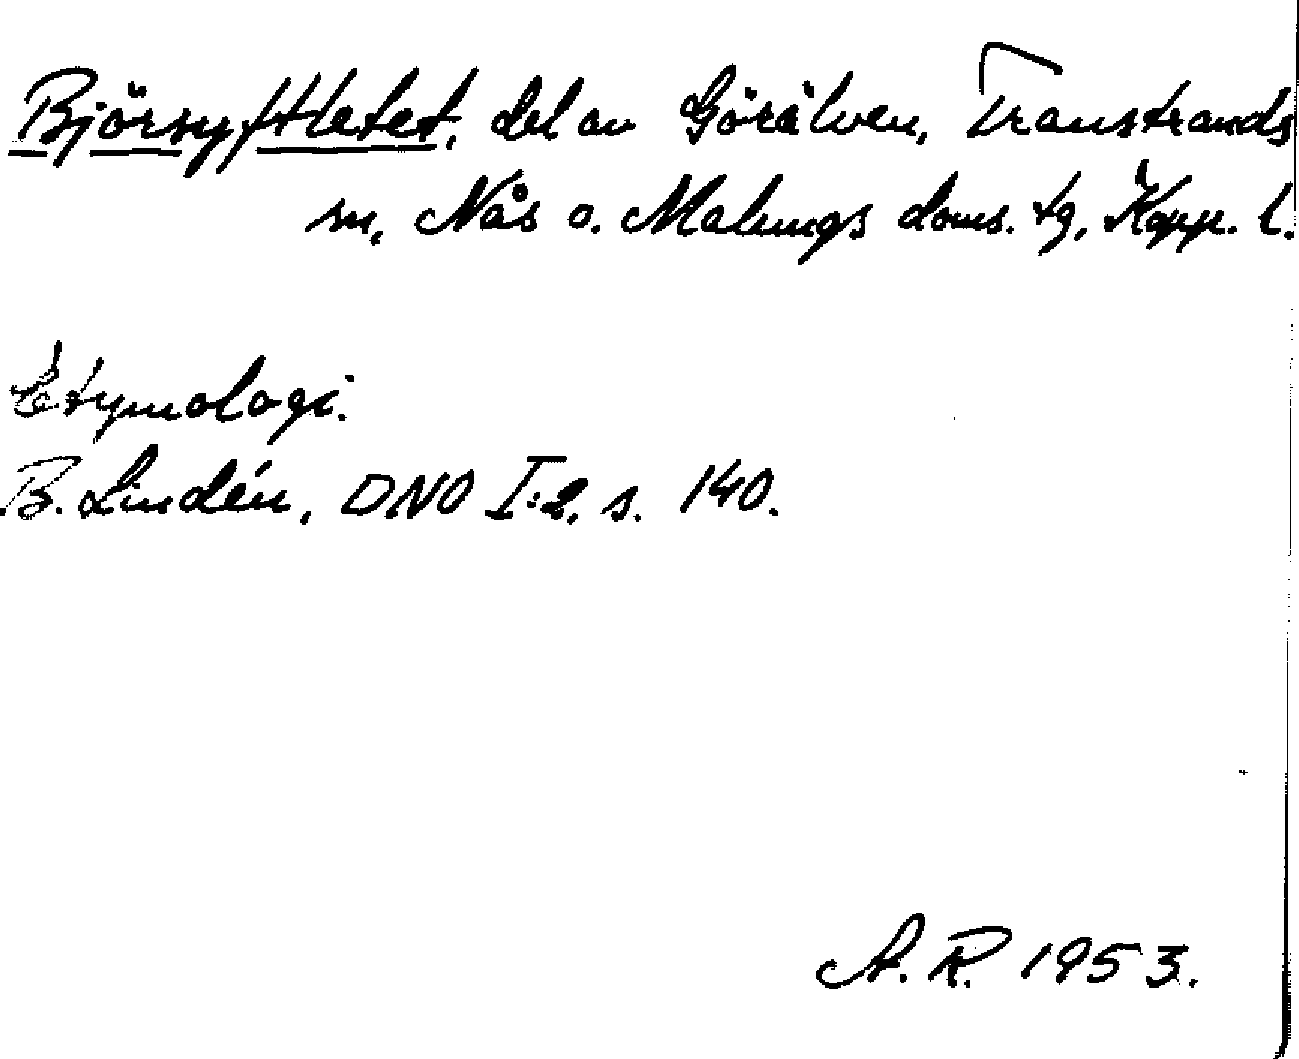 Björsyftletet, del av Görälven, Transtrands
sn, Nås o. Malungs doms. tg, Kopp. l.
Etymologi.
B. Lindén, DNO I:2, s. 140.
A. R. 1953.